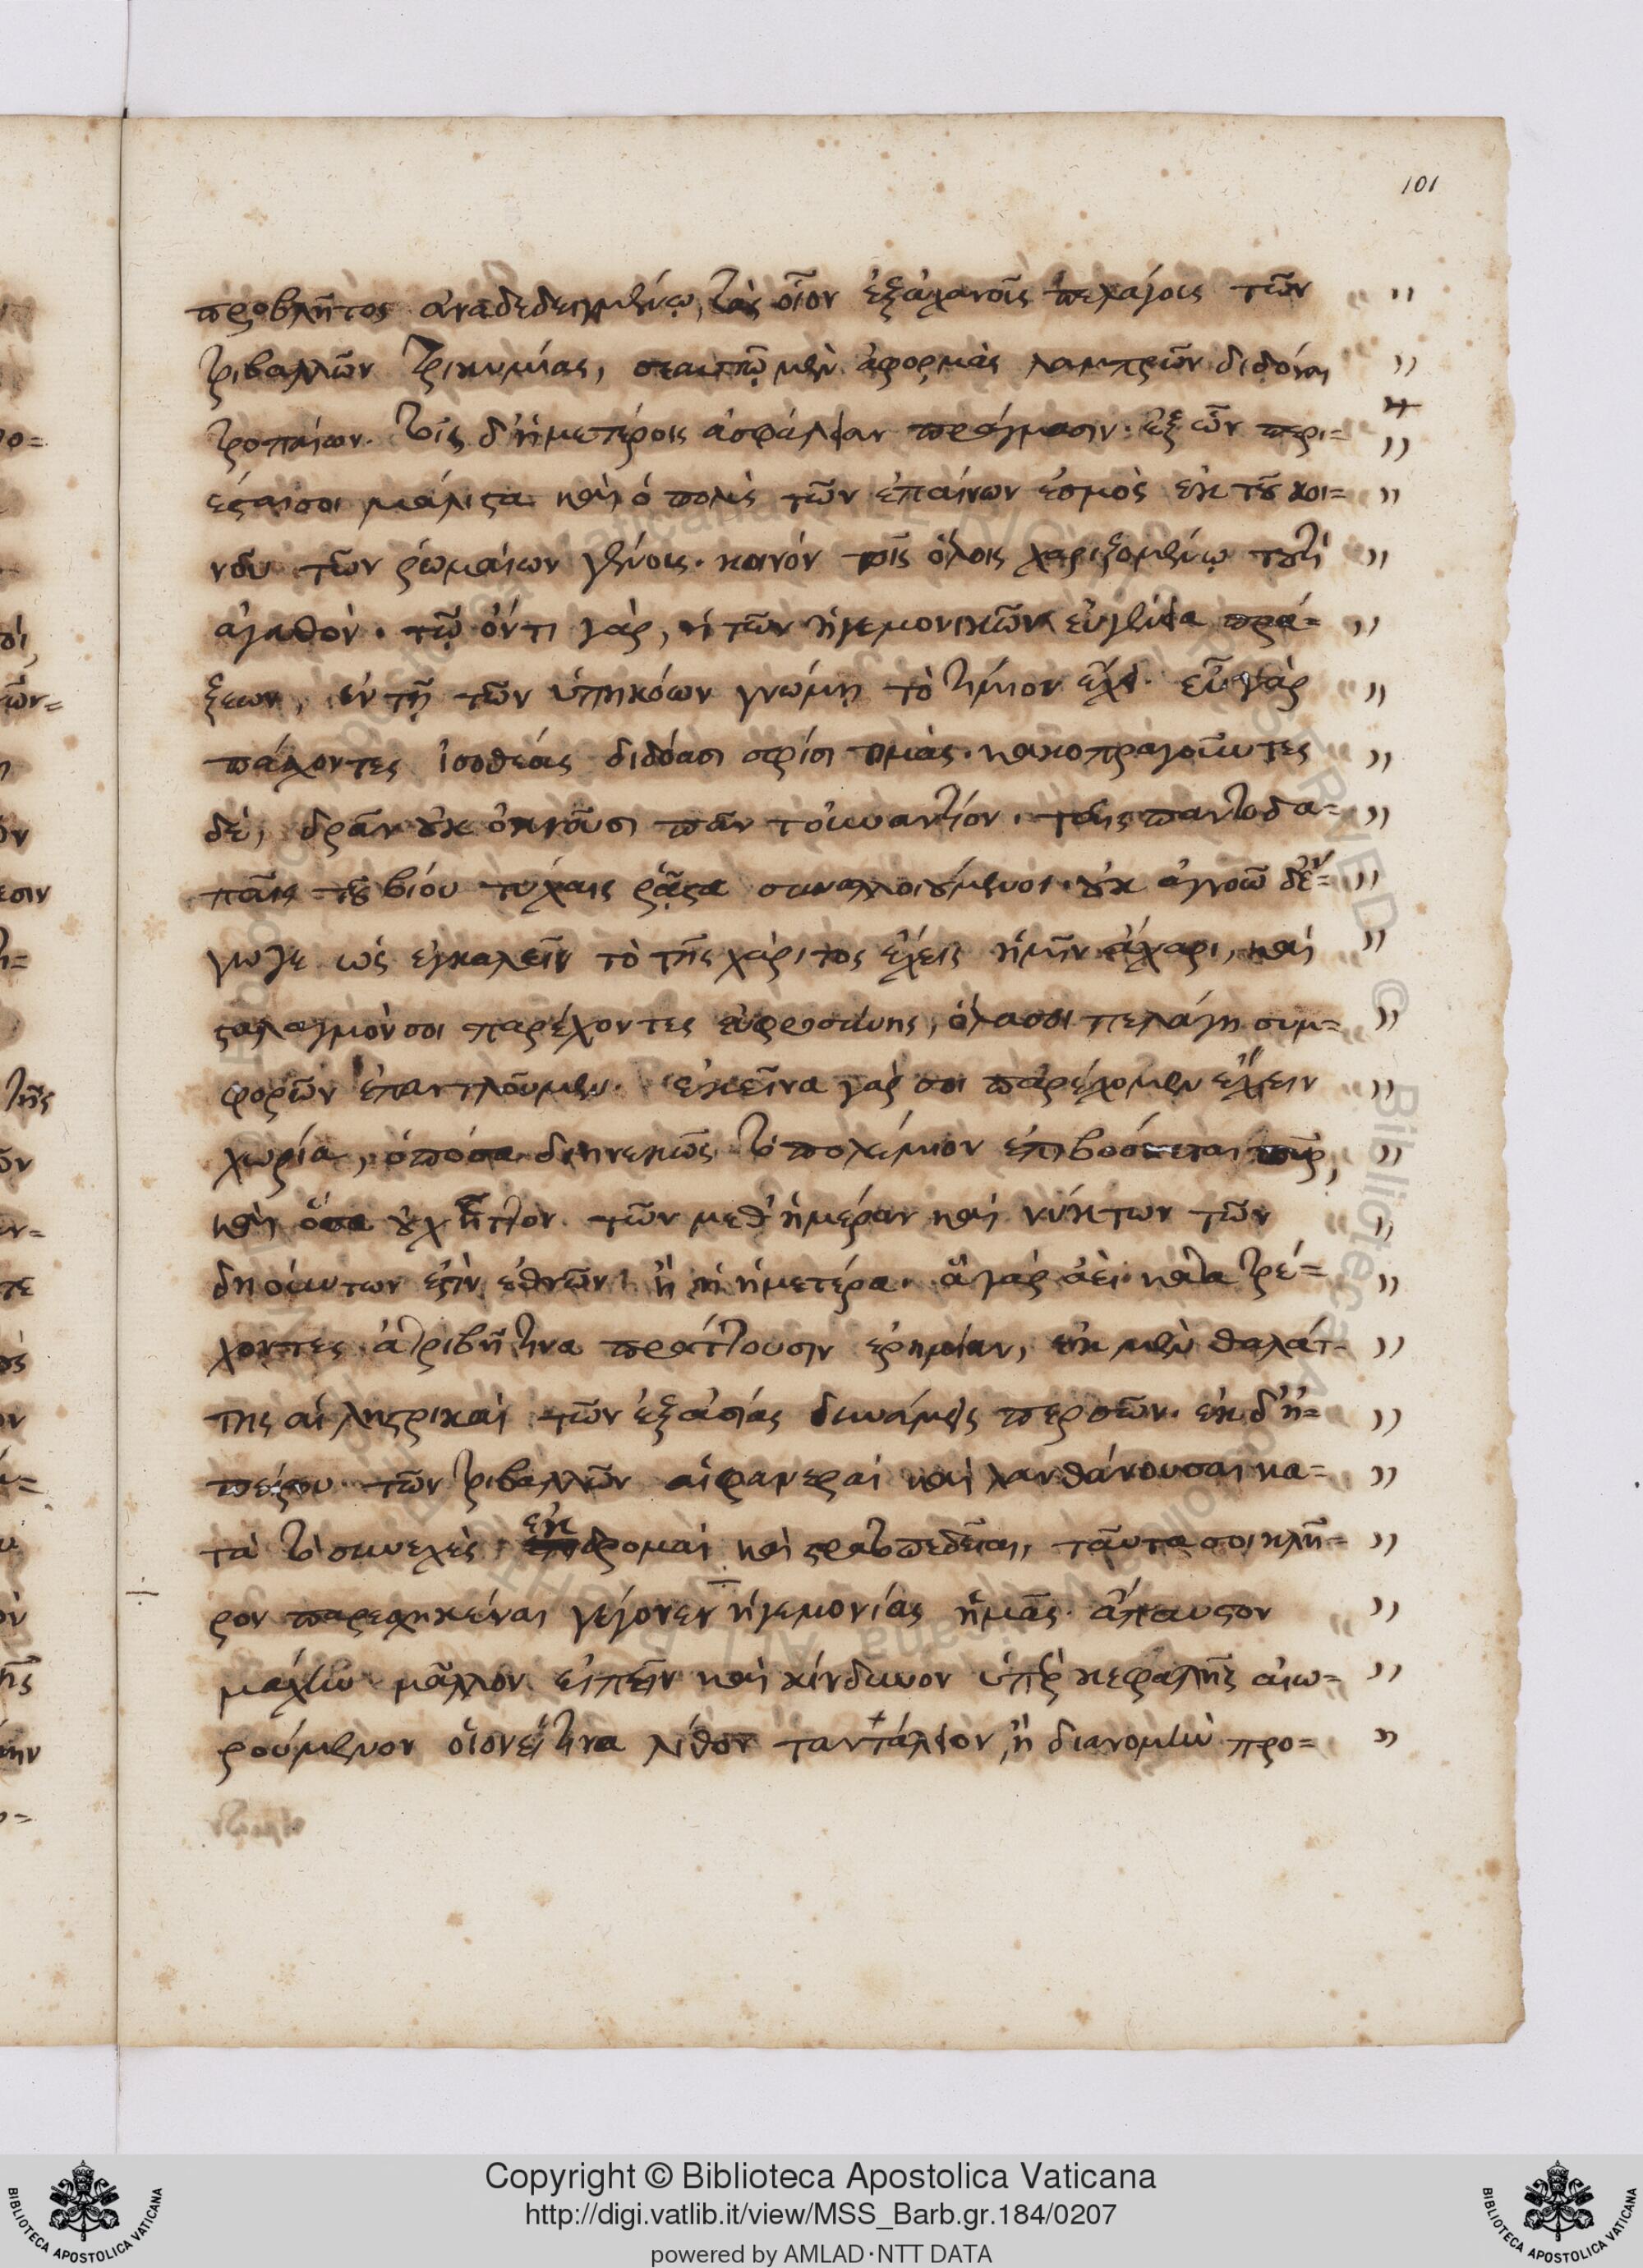 101
προβλῆτος ἀναδεδειγμένῳ, τὰς οἷον ἐξ ἀχανοῦς πελάγους τῶν
τριβαλλῶν τρικυμίας, σεαυτῷ μὲν ἀφορμὰς λαμπρῶν διδόναι
τροπαίων. τοῖς δ' ἡμετέροις ἀσφάλειαν πράγμασιν. ἐξ ὧν περι=
έσται σοι μάλιστα καὶ ὁ πολὺς τῶν ἐπαίνων ἑσμὸς ἐκ τοῦ κοι=
νοῦ τῶν ῥωμαίων γένους. κοινόν τοῖς ὅλοις χαριζομένῳ τουτὶ
ἀγαθόν. τῷ ὄντι γὰρ, ἡ τῶν ἡγεμονικῶν εὐγένεια πρά=
ξεων, ἐν τῇ τῶν ὑπηκόων γνώμῃ τὸ τίμιον ἔχει. εὖ γὰρ
πάσχοντες ἰσοθέους διδόασι σφίσι τιμάς. κακοπραγοῦντες
δὲ, δρᾶν οὐκ ὀκνοῦσι πᾶν τοὐναντίον. ταῖς παντοδα=
παῖς τοῦ βίου τύχαις ῥᾷστα συναλλοιούμενοι. οὐκ ἀγνοῶ δ' ἔ=
γωγε ὡς ἐγκαλεῖν τὸ τῆς χάριτος ἔχεις ἡμῖν ἄχαρι, καὶ
σταλαγμόν σοι παρέχοντες εὐφροσύνης, ὅλα σοι πελάγη συμ=
φορῶν ἐπαντλοῦμεν. ἐκεῖνα γάρ σοι παρέχομεν ἔχειν
χωρία, ὁπόσα διηνεκῶς τὸ πολέμιον ἐπιβόσκεται πῦρ,
καὶ ὅσα οὐχ ἧττον τῶν μεθ' ἡμέραν καὶ νύκτων τῶν
δηούντων ἐστὶν ἐθνῶν ἢ ἡ ἡμετέρα. ἃ γὰρ ἀεὶ κατατρέ=
χοντες ἀτριβῆ τινα πράττουσιν ἐρημίαν, ἐκ μὲν θαλάτ-
της αἱ λῃστρικαὶ τῶν ἐξ ἀσίας δυνάμεις περσῶν. ἐκ δ' ἠ=
πείρου τῶν τριβαλλῶν αἱ φανεραὶ καὶ λανθάνουσαι κα=
τὰ τὸ συνεχὲς ἐκδρομαὶ καὶ στρατοπεδεῖαι, ταῦτα σοι κλῆ=
ρον παρεσχηκέναι γέγονεν ἡγεμονίας ἡμᾶς. ἄπαυστον
μάχην μᾶλλον εἰπεῖν καὶ κίνδυνον ὑπὲρ κεφαλῆς αἰω=
ρούμενον οἱονεί τινα λίθον ταντάλειον, ἢ διανομὴν προ=
Copyright © Biblioteca Apostolica Vaticana
http://digi.vatlib.it/view/MSS_Barb.gr.184/0207
powered by AMLAD·NTT DATA